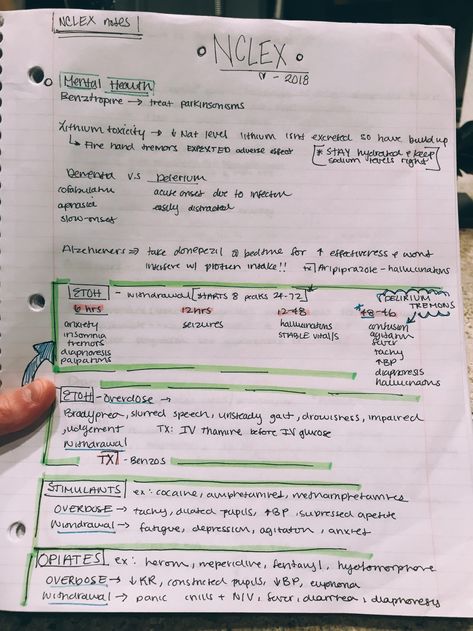 NCLEX notes
• NCLEX •
- 2018
Mental Health
Benztropine → treat parkinsonisms
Lithium toxicity → ↓ Na+ level lithium isnt excreted so have build up
↳ Fine hand tremors EXPECTED adverse effect
* STAY hydrated & keep sodium levels right
Dementia V.S Delerium
confabulation acute onset due to infection
aphasia easily distracted
slow-onset
Alzcheimers → take donepezil @ bedtime for ↑ effectiveness & wont
interfere w/ protien intake!! tx Aripiprazole - hallucinations
ETOH - withdrawal [STARTS 8 peaks 24-72]
DELIRIUM TREMONS
6 hrs 12hrs 12-48 * 48-96
anxiety seizures hallucinations confusion
insomnia STABLE vitalls agitation
tremors fever
diaphoresis tachy
palpations ↑BP
diaphoresis
hallucinations
ETOH - Overdose →
Bradypnea, slurred speech, unsteady gait, drowisness, impaired
judgement TX: IV thamine before IV glucose
Withdrawal
TX - Benzos
STIMULANTS ex: cocaine, amphetamines, methamphetamines
OVERDOSE → tachy, dilated pupils, ↑BP, supressed apetite
Withdrawal → fatigue, depression, agitation, anxiety
OPIATES ex: heroin, meperidine, fentanyl, hydromorphone
OVERDOSE → ↓ RR, constricted pupils, ↓BP, euphoria
Withdrawal → panic chills + N/V, fever, diarrhea, diaphoresis